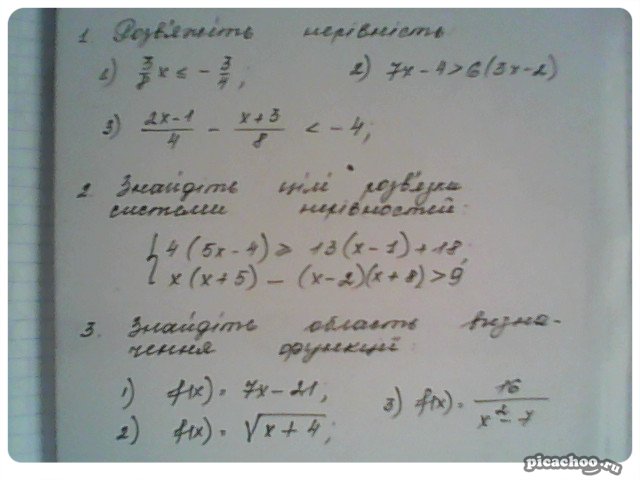 1. Розв'яжіть нерівність
1) 3/8 x ≤ - 3/4; 2) 7x-4>6(3x-2)
3) (2x-1)/4 - (x+3)/8 < -4;
2. Знайдіть цілі розв'язки
системи нерівностей:
{ 4(5x-4) ≥ 13(x-1)+18;
x(x+5) - (x-2)(x+8)>9
3. Знайдіть область визна-
чення функції:
1) f(x) = 7x-21;
2) f(x) = √(x+4); 3) f(x) = 16/(x²-7)
picachoo.ru